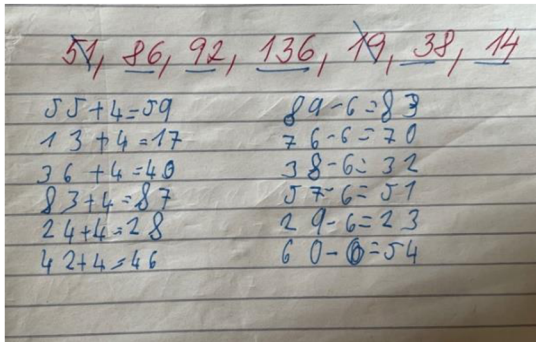 51, 86, 92, 136, 19, 38, 14
55+4=59
13+4=17
36+4=40
83+4=87
24+4=28
42+4=46
89-6=83
76-6=70
38-6=32
57-6=51
29-6=23
60-6=54